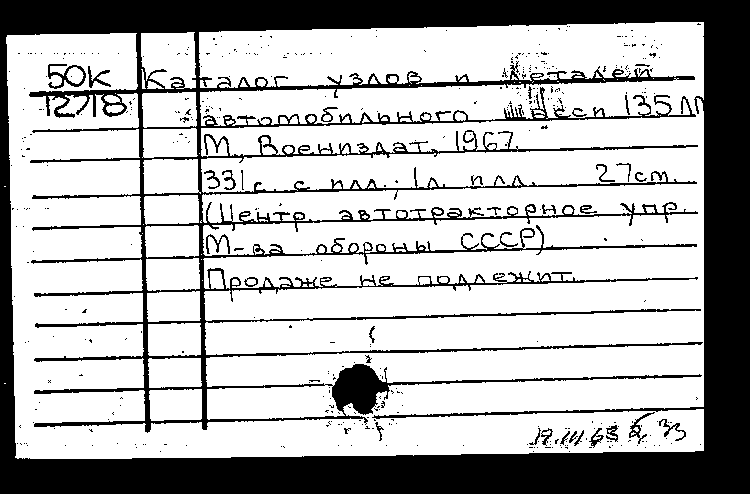 50К Каталог узлов и деталей
12718 автомобильного шасси 135ЛМ
М., Воениздат, 1967.
331с. с илл.; 1л. илл. 27см.
(Центр. автотракторное упр.
М-ва обороны СССР).
Продаже не подлежит.
19.III.68